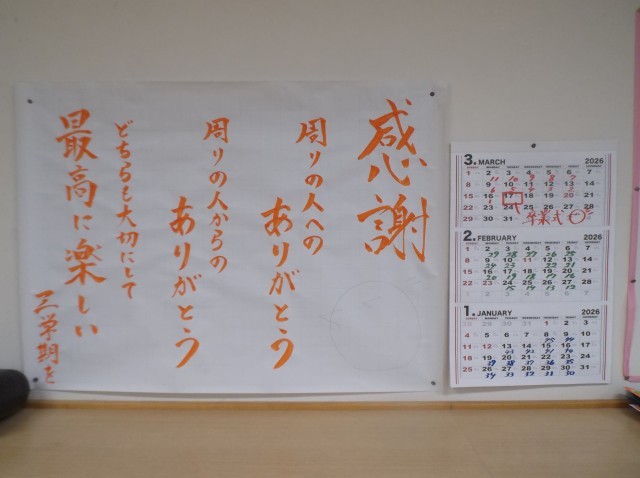 感謝
周りの人への
ありがとう
周りの人からの
ありがとう
どちらも大切にして
最高に楽しい
三学期を
3. MARCH 2026
1 2 3 4 5 6 7
8 9 10 11 12 13 14
15 16 17 18 19 20 21
22 23 24 25 26 27 28
29 30 31
卒業式
2. FEBRUARY 2026
1 2 3 4 5 6 7
8 9 10 11 12 13 14
15 16 17 18 19 20 21
22 23 24 25 26 27 28
1. JANUARY 2026
1 2 3
4 5 6 7 8 9 10
11 12 13 14 15 16 17
18 19 20 21 22 23 24
25 26 27 28 29 30 31